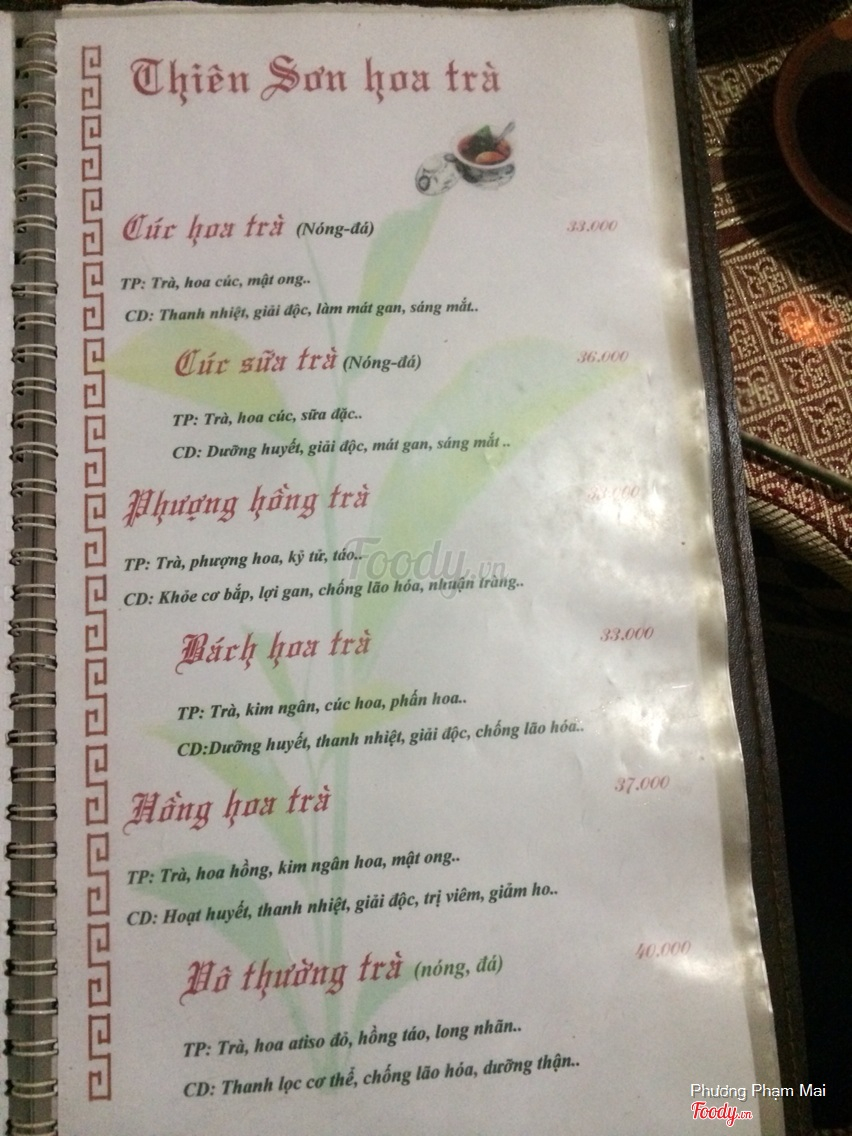 Thiên Sơn hoa trà
Cúc hoa trà (Nóng-đá) 33.000
TP: Trà, hoa cúc, mật ong..
CD: Thanh nhiệt, giải độc, làm mát gan, sáng mắt..
Cúc sữa trà (Nóng-đá) 36.000
TP: Trà, hoa cúc, sữa đặc..
CD: Dưỡng huyết, giải độc, mát gan, sáng mắt ..
Phượng hồng trà
TP: Trà, phượng hoa, kỷ tử, táo..
CD: Khỏe cơ bắp, lợi gan, chống lão hóa, nhuận tràng..
Foody.vn
Bách hoa trà 33.000
TP: Trà, kim ngân, cúc hoa, phấn hoa..
CD:Dưỡng huyết, thanh nhiệt, giải độc, chống lão hóa..
Hồng hoa trà 37.000
TP: Trà, hoa hồng, kim ngân hoa, mật ong..
CD: Hoạt huyết, thanh nhiệt, giải độc, trị viêm, giảm ho..
Vô thường trà (nóng, đá) 40.000
TP: Trà, hoa atiso đỏ, hồng táo, long nhãn..
CD: Thanh lọc cơ thể, chống lão hóa, dưỡng thận..
Phương Phạm Mai
Foody.vn